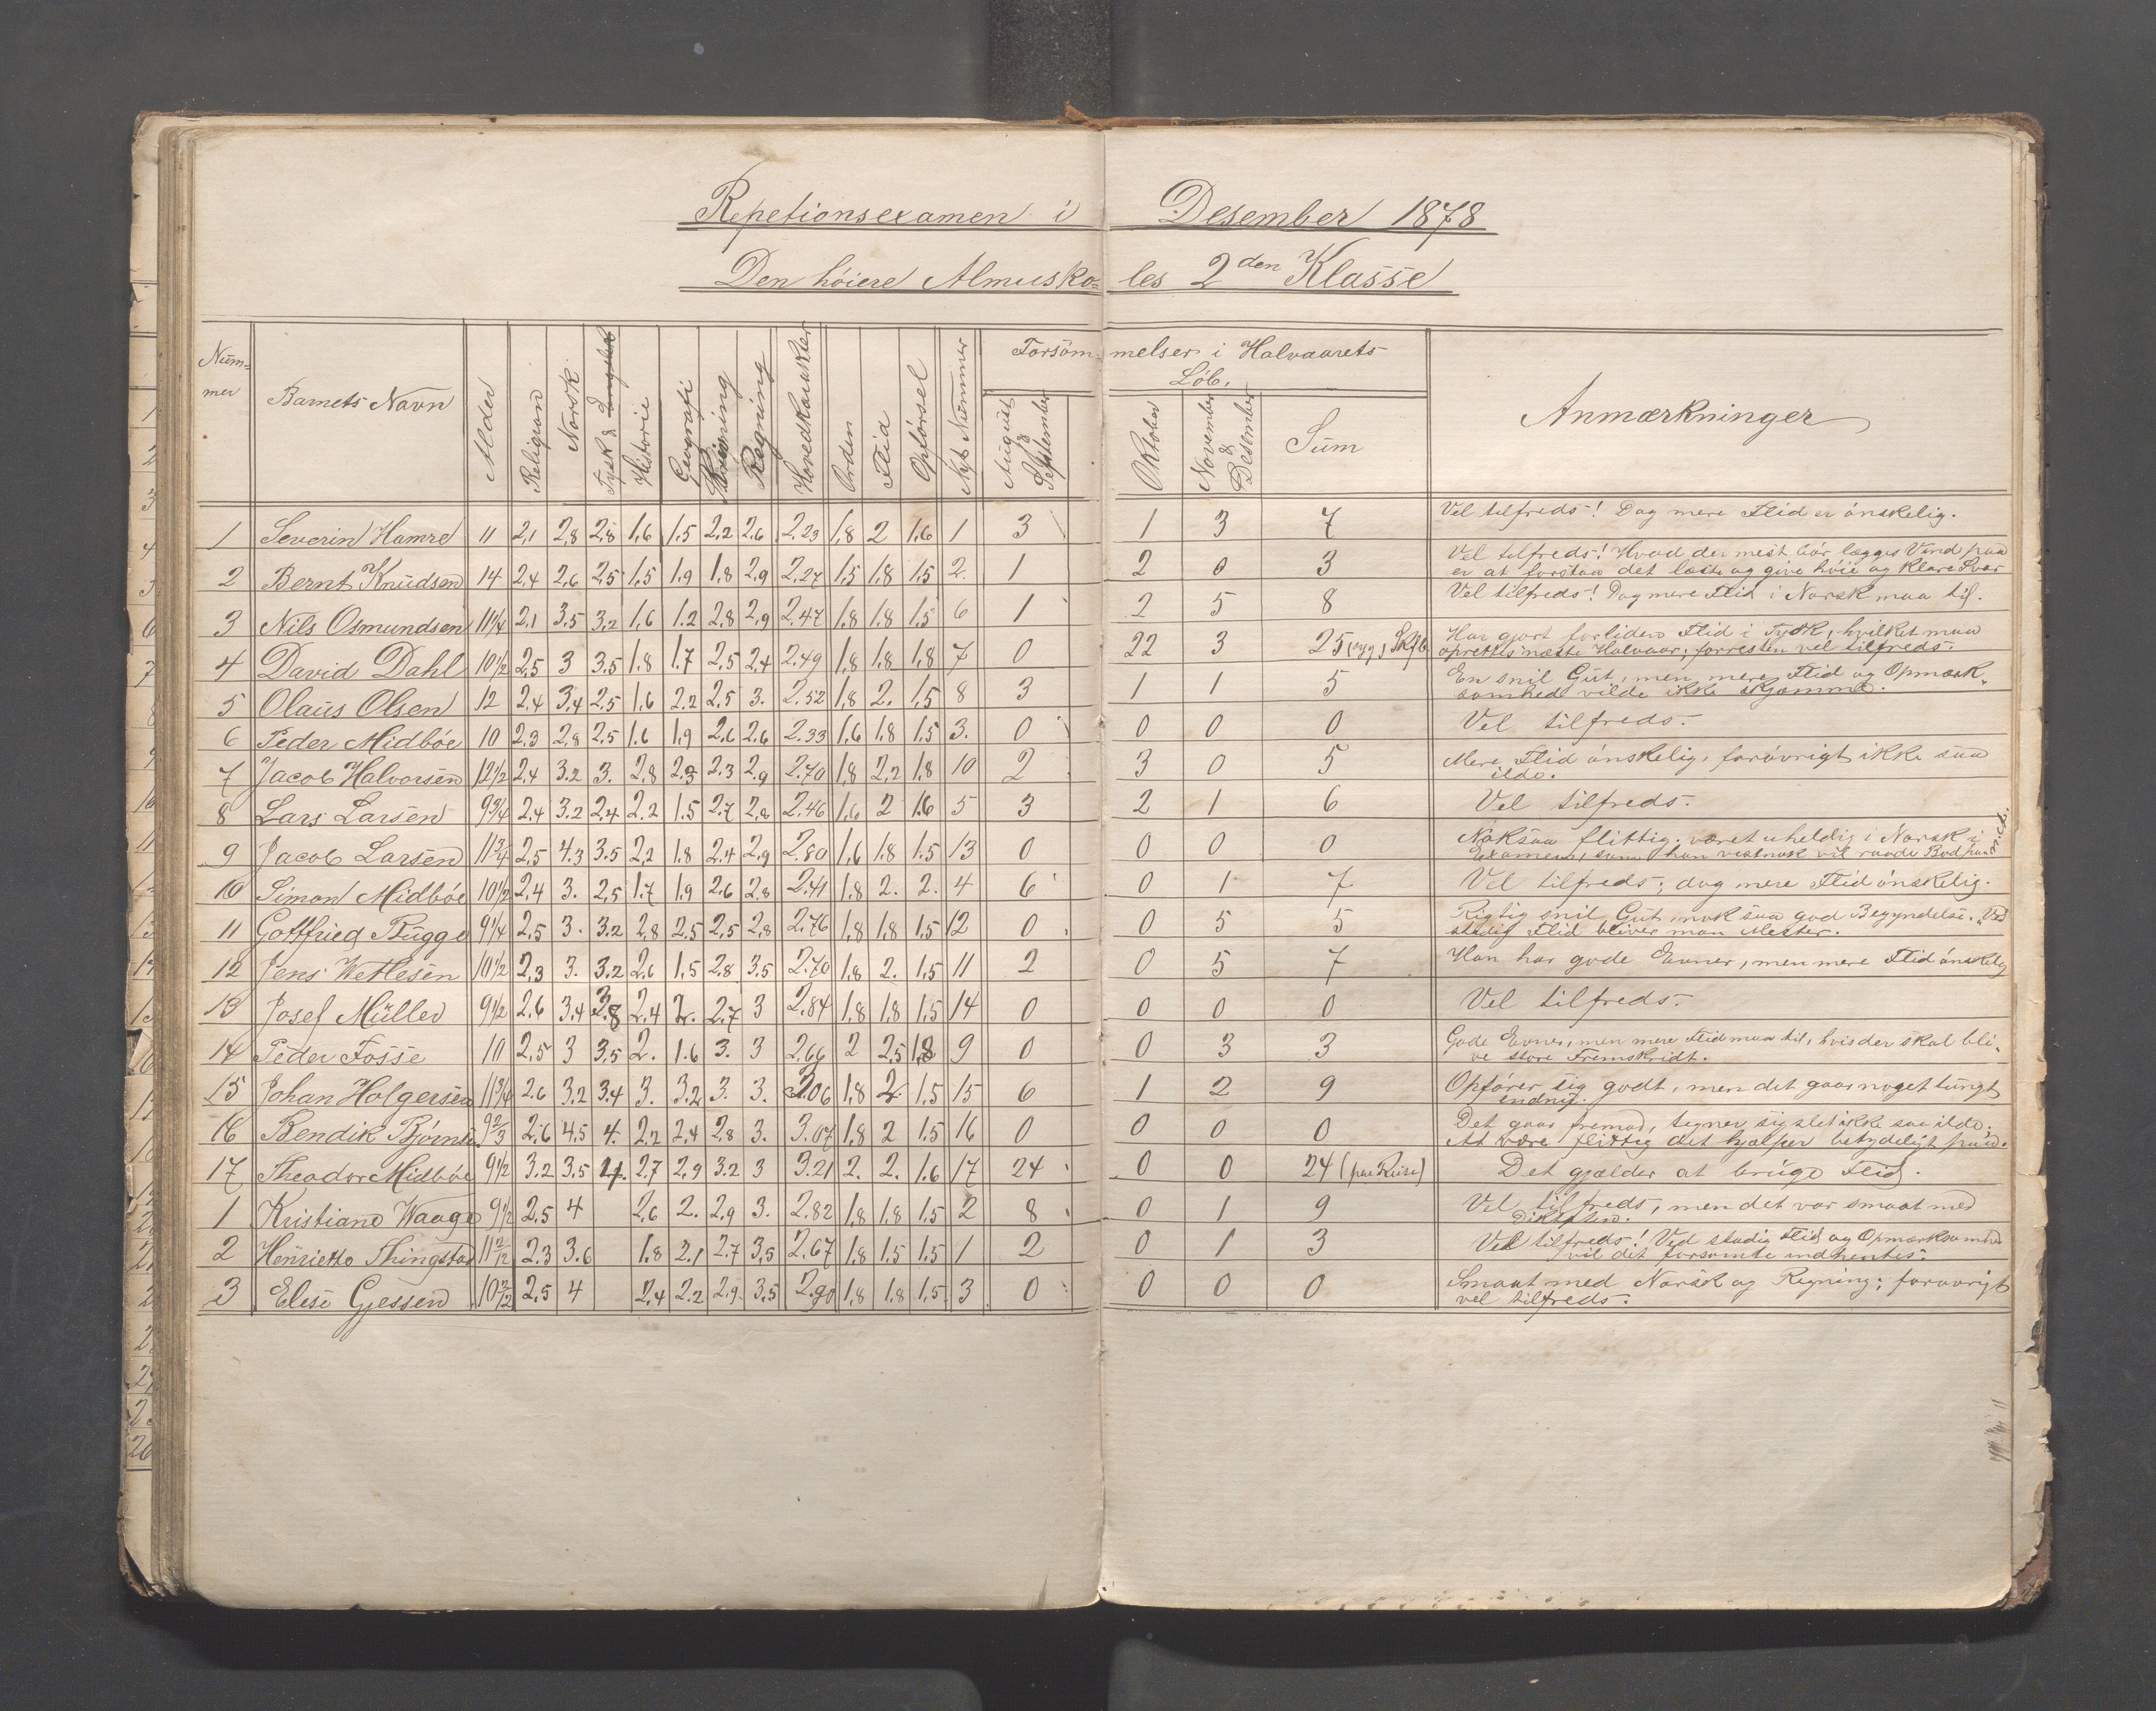 Repetionsexamen i Desember 1878
Den höiere Almusko- les 2den Klasse
Num- mer | Barnets Navn | Alder | Religion | Norsk | Tysk & Engelsk | Historie | Geografi | Skrivning | Regning | Hovedkarakter | Orden | Flid | Opförsel | Nyt Nummer | Forsöm- melser i Halvaarets Löb. | August & September | Oktober | November & Desember | Sum | Anmærkninger
1 Severin Hamre 11 2,1 2,8 2,8 1,6 1,5 2,2 2,6 2.23 1,8 2 1,6 1 3 1 3 7 Vel tilfreds! Dog mere Flid er önskelig.
2 Bernt Knudsen 14 2,4 2,6 2,5 1,5 1,9 1,8 2,9 2,27 1,5 1,8 1,5 2. 1 2 0 3 Vel tilfreds! Hvad der mest bör lægges Vind paa
er at forstaa det læste og give höie og klare Svar
3 Nils Osmundsen 11 1/4 2,1 3,5 3,2 1,6 1.2 2,8 2,9 2.47 1,8 1,8 1,5 6 1 2 5 8 Vel tilfreds! Dog mere Flid i Norsk maa til.
4 David Dahl 10 1/2 2,5 3 3.5 1.8 1.7 2,5 2,4 2.49 1,8 1,8 1,8 7 0 22 3 25 (syg) Har gjort forliden Flid i Tysk, hvilket maa
oprettes næste Halvaar; forresten vel tilfreds.
5 Olaus Olsen 12 2,4 3,4 2,5 1,6 2.2 2,5 3. 2.52 1,8 2. 1,5 8 3 1 1 5 En snil Gut, men mere Flid og Opmærk-
somhed vilde ikke skjæmme.
6 Peder Midböe 10 2,3 2,8 2,5 1,6 1,9 2,6 2,6 2.33 1,6 1,8 1,5 3. 0 0 0 0 Vel tilfreds.
7 Jacob Halvorsen 12 1/2 2,4 3.2 3. 2,8 2,3 2.3 2,9 2.70 1,8 2,2 1,8 10 2 3 0 5 Mere Flid önskelig, forövrigt ikke saa
ilde.
8 Lars Larsen 9 3/4 2,4 3.2 2,4 2.2 1.5 2.7 2,8 2.46 1,6 2 1.6 5 3 2 1 6 Vel tilfreds.
9 Jacob Larsen 11 3/4 2,5 4.3 3.5 2,2 1.8 2.4 2,9 2.80 1,6 1.8 1.5 13 0 0 0 0 Noksaa flittig; været uheldig i Norsk i
Examen, som han vistnok vil raade Bod paa
10 Simon Midböe 10 1/2 2,4 3. 2,5 1.7 1,9 2,6 2,8 2.41 1,8 2. 2. 4 6 0 1 7 Vel tilfreds; dog mere Flid önskelig.
11 Gottfried Bugge 9 1/4 2,5 3. 3.2 2,8 2,5 2,5 2,8 2.76 1,8 1,8 1,5 12 0 0 5 5 Rigtig snil Gut, nok saa god Begyndelse. Ved
stadig Flid bliver man Mester.
12 Jens Wetlesen 10 1/2 2,3 3. 3.2 2,6 1,5 2,8 3,5 2.70 1,8 2. 1,5 11 2 0 5 7 Han har gode Evner, men mere Flid önskelig
13 Josef Müller 9 1/2 2.6 3,4 3.8 2,4 2. 2.7 3 2,84 1,8 1,8 1,5 14 0 0 0 0 Vel tilfreds.
14 Peder Fosse 10 2,5 3 3.5 2. 1.6 3. 3 2.66 2 2,5 1,8 9 0 0 3 3 Gode Evner, men mere Flid maa til, hvis der skal bli-
ve store Fremskridt.
15 Johan Holgersen 11 3/4 2.6 3.2 3.4 3. 3.2 3. 3. 3.06 1,8 2. 1.5 15 6 1 2 9 Opförer sig godt, men det gaar noget tungt
endnu.
16 Bendik Björnsen 9 2/3 2,6 4,5 4. 2,2 2,4 2,8 3. 3.07 1,8 2 1,5 16 0 0 0 0 Det gaar fremad, tegner sig slet ikke saa ilde;
At være flittig det hjælper betydeligt paa.
17 Theodor Midböe 9 1/2 3.2 3,5 4. 2.7 2,9 3.2 3 3.21 2. 2. 1.6 17 24 0 0 24 (paa Reise) Det gjælder at bruge Flid.
1 Kristiane Waage 9 1/2 2,5 4 2,6 2. 2,9 3. 2.82 1,8 1,8 1.5 2 8 0 1 9 Vel tilfreds, men det var smaat med
Diktaten.
2 Henriette Thingstad 11 2/12 2.3 3.6 1.8 2.1 2.7 3,5 2.67 1,8 1.5 1.5 1 2 0 1 3 Vel tilfreds! Ved stadig Flid og Opmærksomhed
vil det forsömte indhentes.
3 Elise Gjessen 2,5 4 2,4 2.2 2,9 3,5 2.90 1,8 1.8 1.5 3 0 0 0 0 Smaat med Norsk og Regning; forövrigt
vel tilfreds.